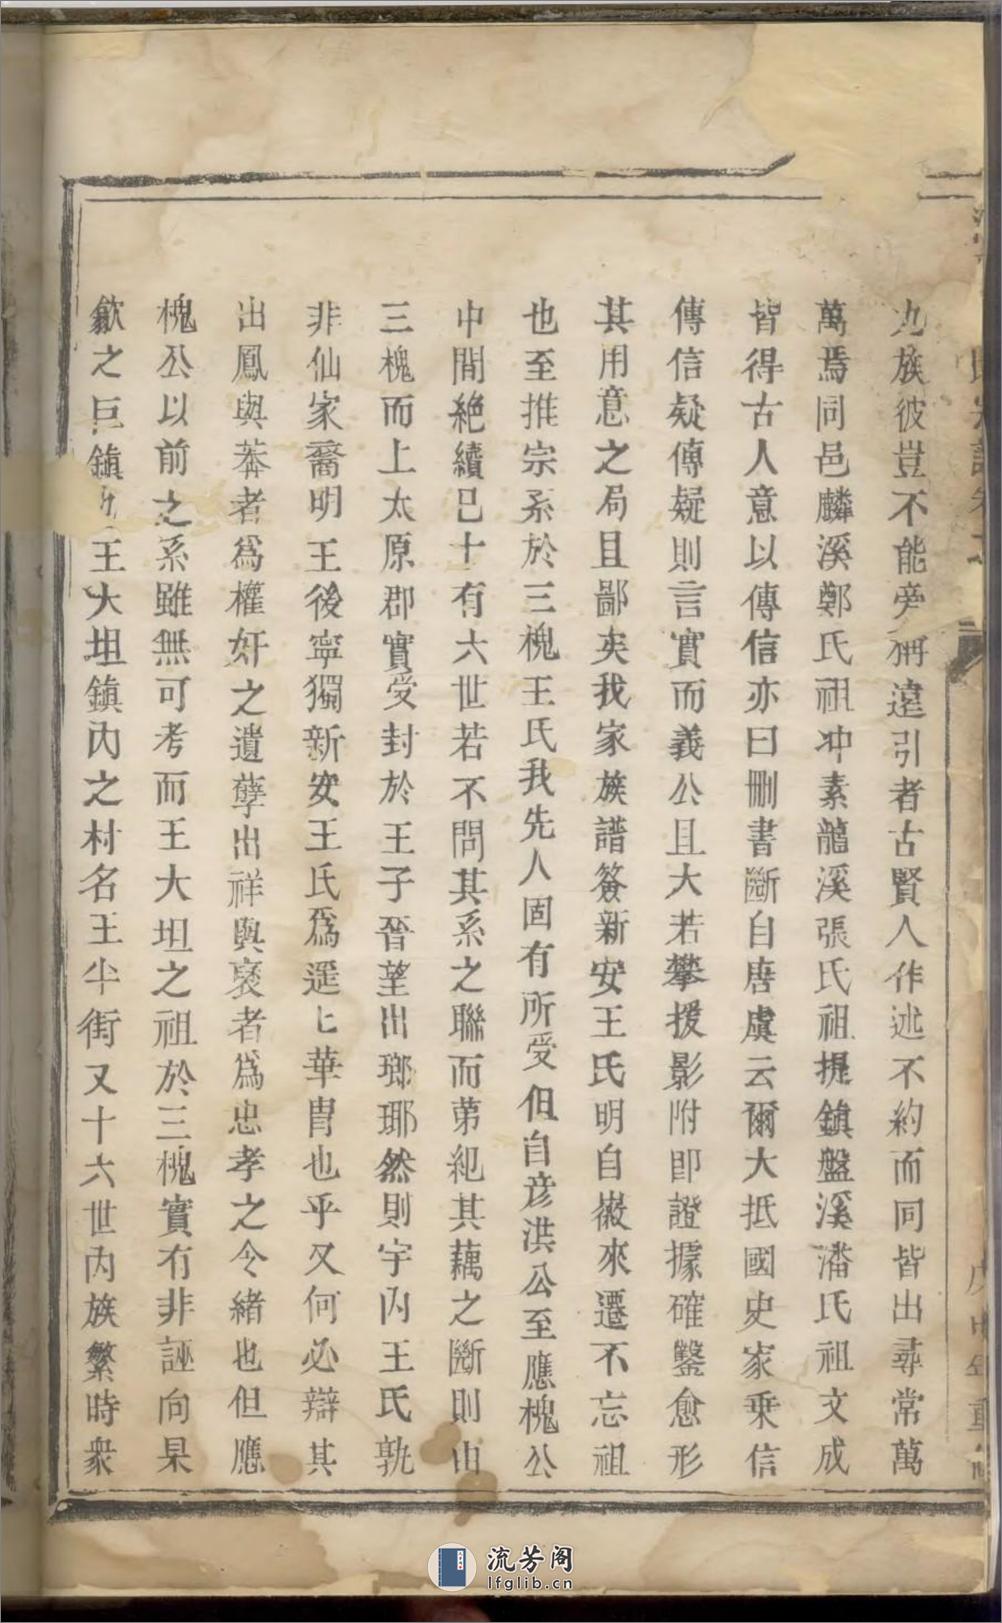 九族彼豈不能旁稱遠引者古賢人作述不約而同皆出尋常萬
萬焉同邑麟溪鄭氏祖冲素龍溪張氏祖提鎮盤溪潘氏祖文成
皆得古人意以傳信亦曰刪書斷自唐虞云爾大抵國史家乗信
傳信疑傳疑則言實而義公且大若攀援影附卽證據確鑿愈形
其用意之局且鄙矣我家族譜簽新安王氏明自徽來遷不忘祖
也至推宗系於三槐王氏我先人固有所受但自彦洪公至應槐公
中間絶續已十有六世若不問其系之聯而苐紀其藕之斷則由
三槐而上太原郡實受封於王子晉望出瑯琊然則宇內王氏孰
非仙家裔明王後寧獨新安王氏爲遥遥華胄也乎又何必辯其
出鳳與莽者爲權奸之遺孽出祥與裒者爲忠孝之令緒也但應
槐公以前之系雖無可考而王大坦之祖於三槐實有非誣向杲
歙之巨鎮 王大坦鎮內之村名王半街又十六世內族繁時衆
流芳阁
lfglib.cn